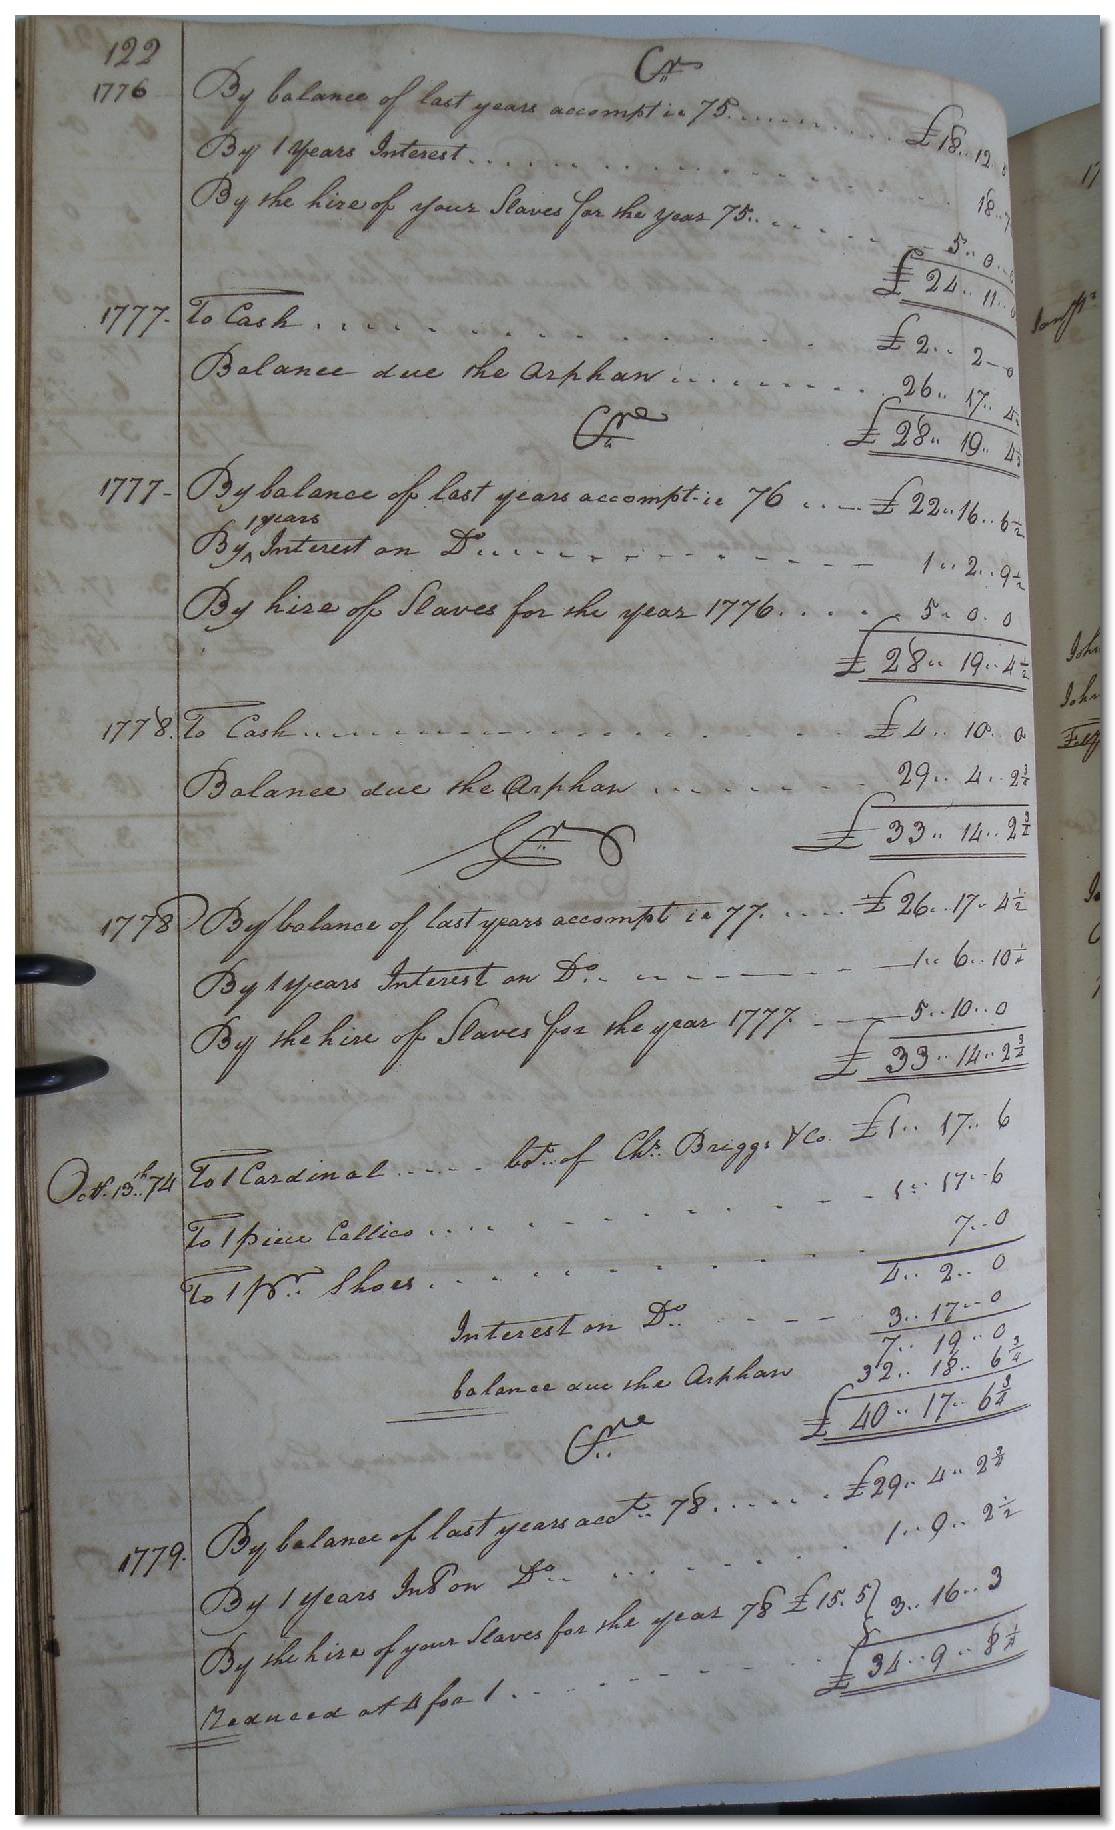 122
Cr
1776 By balance of last years accompt ie 75 £18..12
By 1 Years Interest 18..7
By the hire of your Slaves for the year 75 5..0..
£24..11..0
1777 To Cash £2..2..0
Balance due the Orphan 26..17..4
£28..19..4½
Cre
1777 By balance of last years accompt ie 76 £22..16..6½
By 1 years Interest on Do 1..2..9½
By hire of Slaves for the year 1776 5..0..0
£28..19..4½
1778 To Cash £4..10..0
Balance due the Orphan 29..4..2¾
£33..14..2¾
Cr
1778 By balance of last years accompt ie 77 £26..17..4½
By 1 years Interest on Do 1..6..10¼
By the hire of Slaves for the year 1777 5..10..0
£33..14..2¾
Octr. 13th 74 To 1 Cardinal bot. of Chs. Briggs & Co. £1..17..6
To 1 piece Callico 1..17..6
To 1 pr. Shoes 7..0
4..2..0
Interest on Do 3..17..0
7..19..0
balance due the Orphan 32..18..6¾
£40..17..6¾
Cre
1779 By balance of last years acct. 78 £29..4..2¾
By 1 years Int on Do 1..9..2½
By the hire of your Slaves for the year 78 £15.5 } 3..16..3
Reduced at 4 for 1
£34..9..8¼